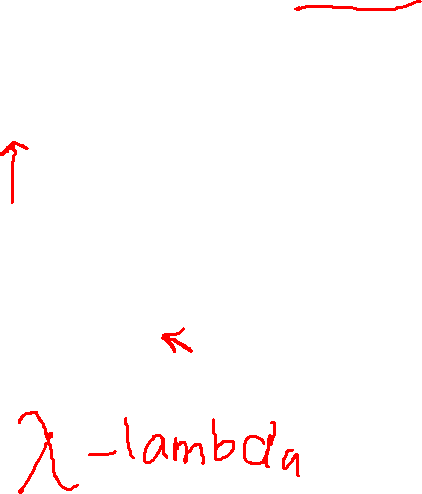 λ - lambda